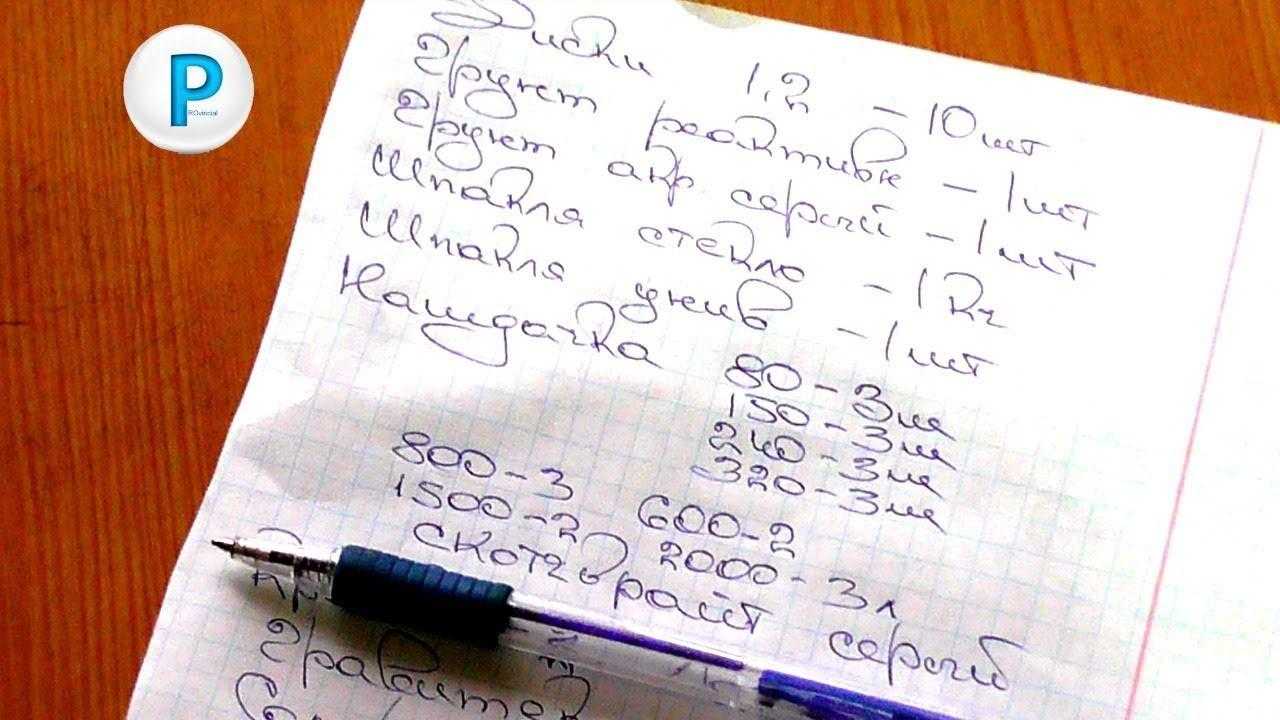 P
ROvincial
Диски 1,2 - 10 шт
Грунт реактивн - 1 шт
Грунт акр. серый - 1 шт
Шпакля стекло - 1 кг
Шпакля унив - 1 шт
Наждачка 80 - 3 м
150 - 3 м
240 - 3 м
320 - 3 м
800 - 3 600 - 2
1500 - 2 2000 - 3 л
Скотчбрайт серый
Гравитек